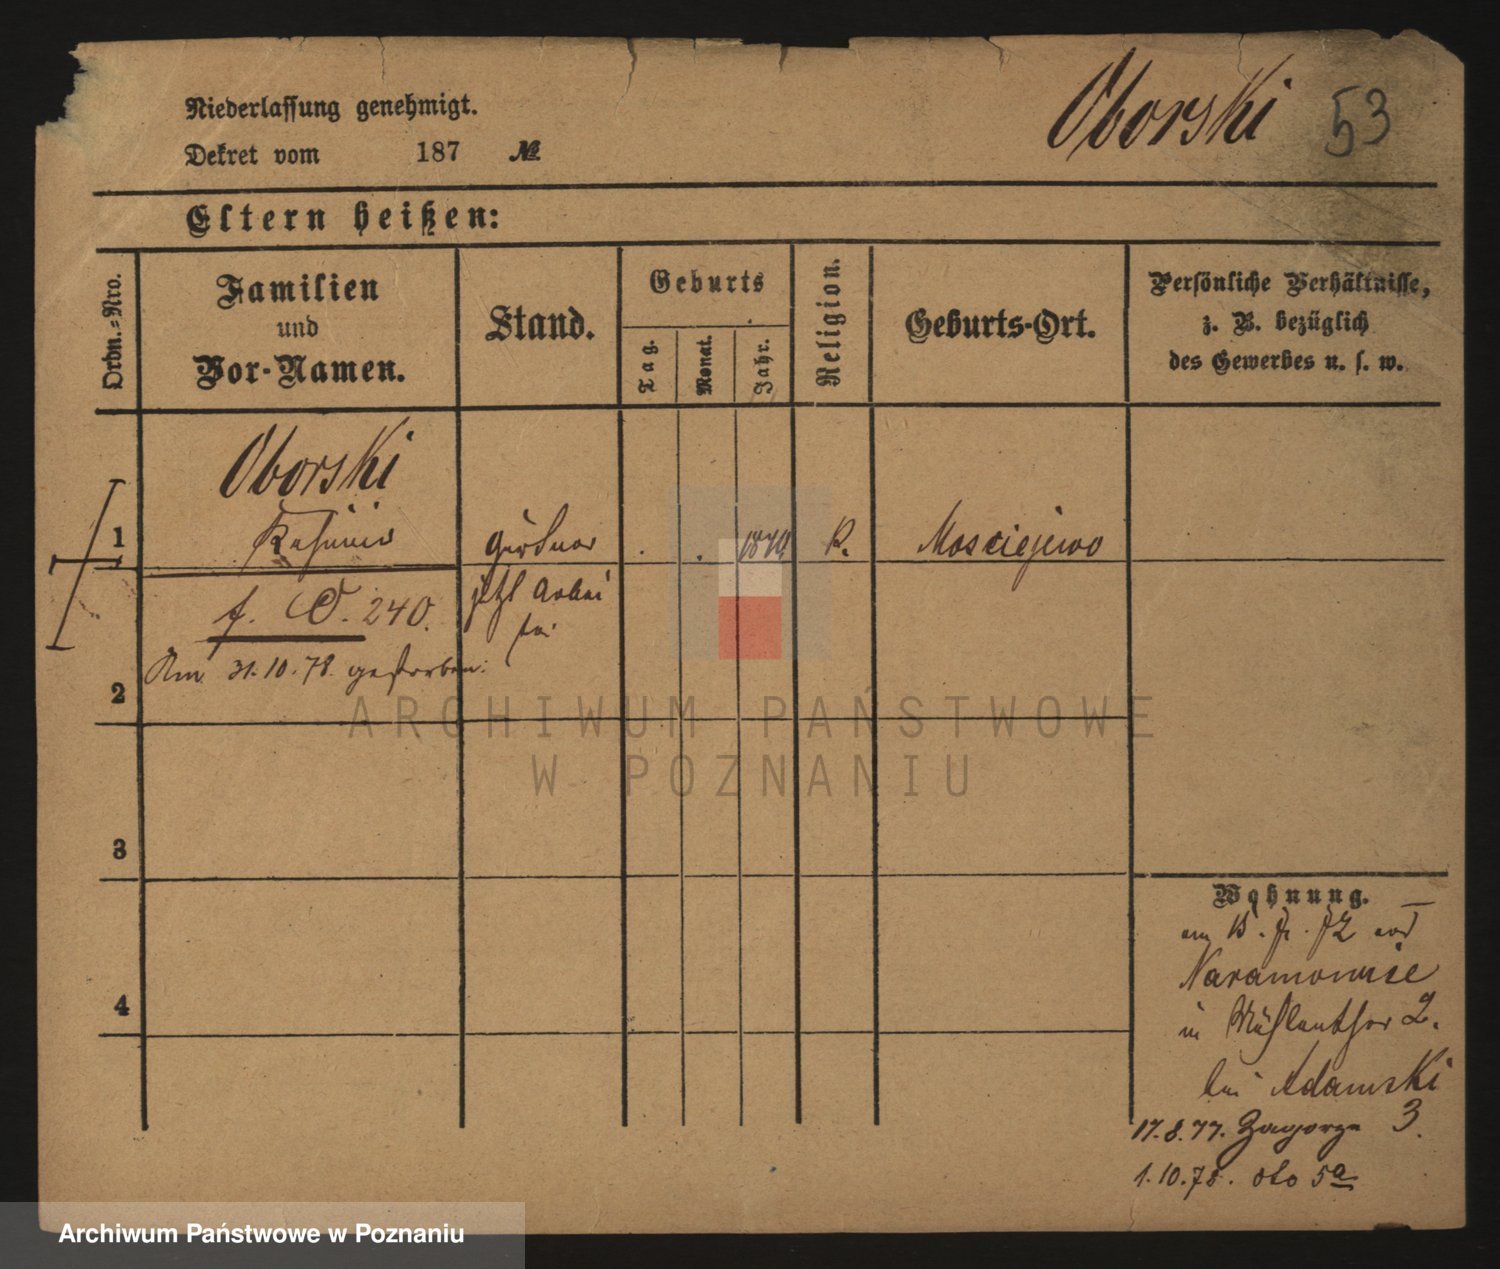 Oborski 53
Niederlassung genehmigt.
Dekret vom 187 №
Eltern heißen:
Ordn.=Nro.
Familien
und
Vor-Namen.
Stand.
Geburts
Tag.
Monat.
Jahr.
Religion.
Geburts-Ort.
Persönliche Verhältnisse,
z. B. bezüglich
des Gewerbes u. s. w.
Oborski
1 Gärtner K. Mosciejewo
jetzt Arbei
ter
f. O. 240.
Am 31.10.78. gestorben.
2
3
4
Wohnung.
am
Naramowice
in Mühlenthor 2.
bei Adamski
17.8.77. Zagorze 3.
1.10.78. dto 5a
ARCHIWUM PAŃSTWOWE
W POZNANIU
Archiwum Państwowe w Poznaniu